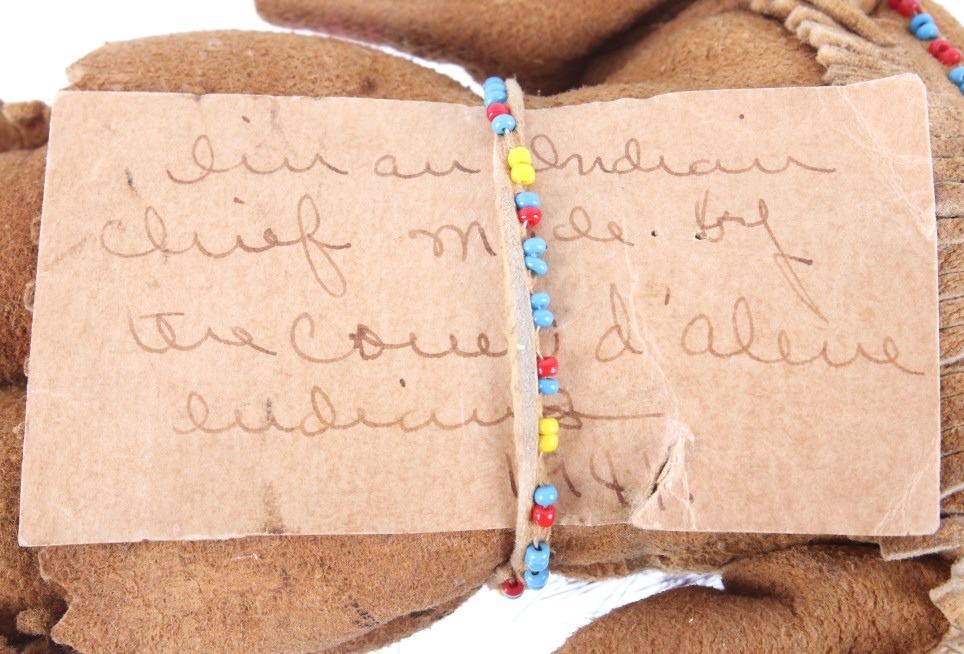 I'm an Indian
Chief made by
the Coeur d'Alene
Indians
194